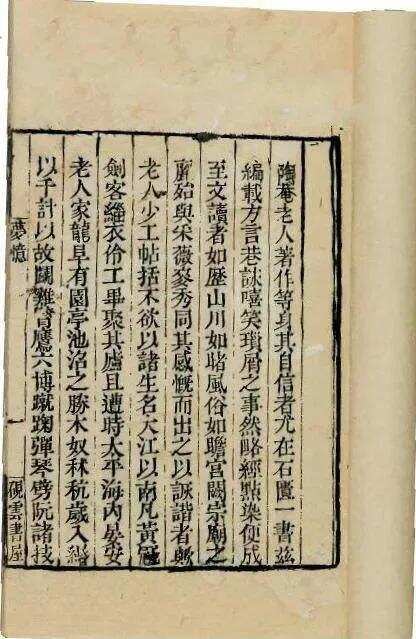 陶菴老人著作等身其自信者尤在石匱一書茲
編載方言巷詠嘻笑瑣屑之事然略經點染便成
至文讀者如歷山川如睹風俗如瞻宮闕宗廟之
麗殆與采薇麥秀同其感慨而出之以詼諧者歟
老人少工帖括不欲以諸生名大江以南凡黃冠
劍客緇衣伶工畢聚其廬且遭時太平海內晏安
老人家龍阜有園亭池沼之勝木奴秫秔歲入緡
以千計以故鬬雞臂鷹六博蹴踘彈琴劈阮諸技
夢憶
硯雲書屋